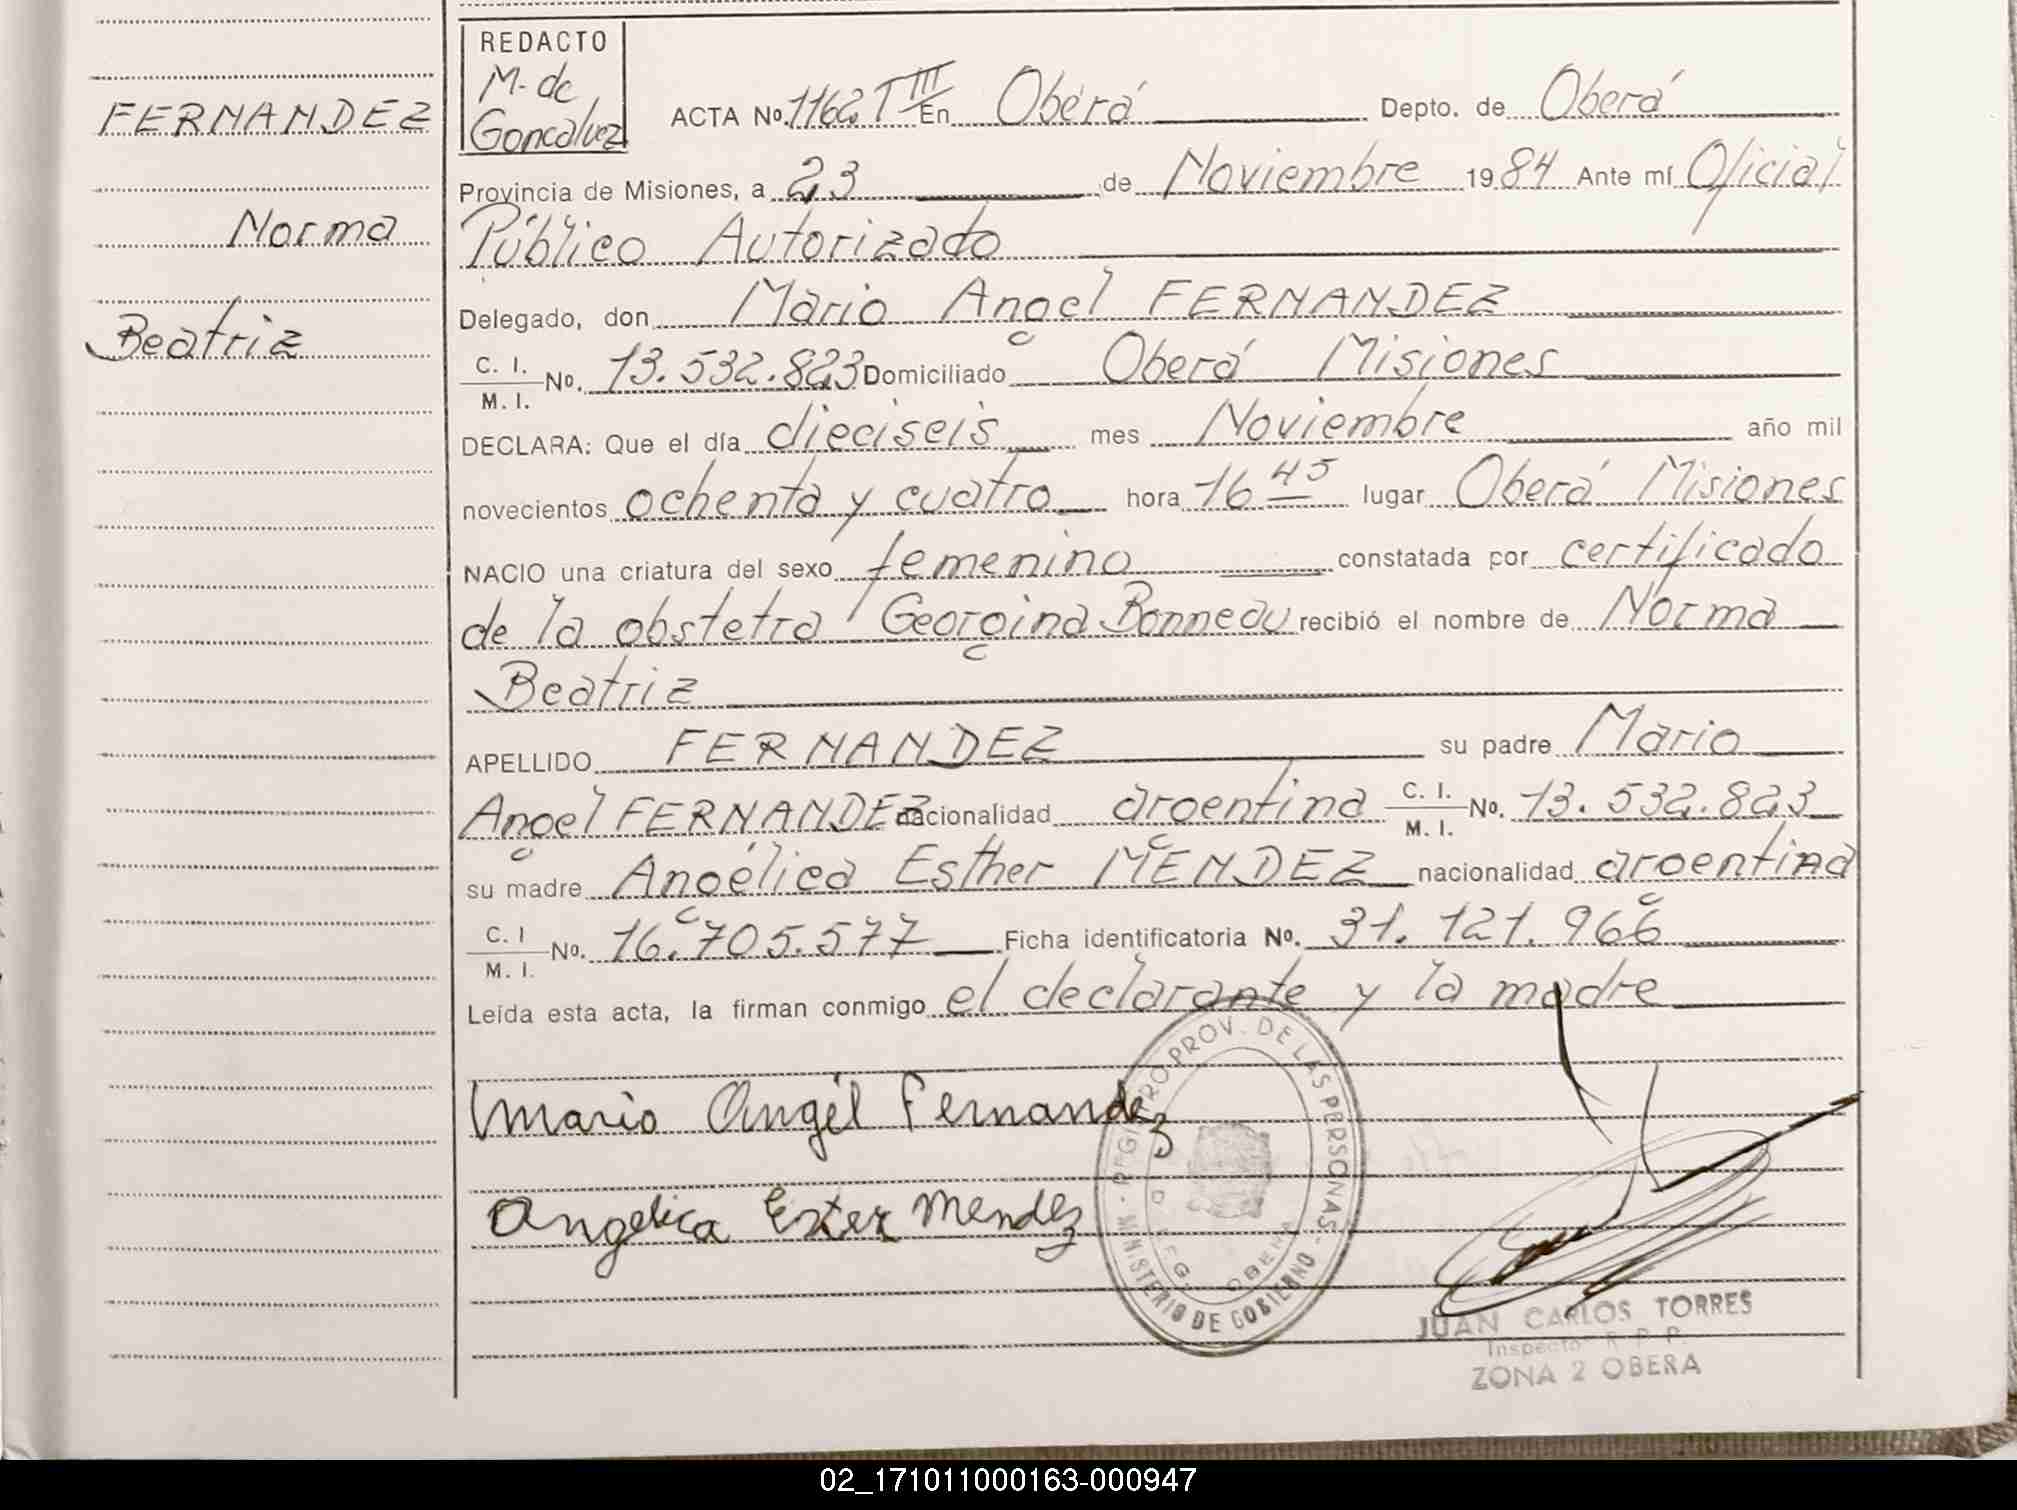 FERNANDEZ
Norma
Beatriz
REDACTO
M. de
Goncalvez
ACTA No. 1162 T III En Oberá Depto. de Oberá
Provincia de Misiones, a 23 de Noviembre 1984 Ante mí Oficial
Público Autorizado
Delegado, don Mario Angel FERNANDEZ
C. I. / M. I. No. 13.532.823 Domiciliado Oberá Misiones
DECLARA: Que el día dieciseis mes Noviembre año mil
novecientos ochenta y cuatro hora 16 45 lugar Oberá Misiones
NACIO una criatura del sexo femenino constatada por certificado
de la obstetra Georgina Bonneau recibió el nombre de Norma
Beatriz
APELLIDO FERNANDEZ su padre Mario
Angel FERNANDEZ nacionalidad argentina C. I. / M. I. No. 13.532.823
su madre Angélica Esther MENDEZ nacionalidad argentina
C. I / M. I. No. 16.705.577 Ficha identificatoria No. 31.121.966
Leída esta acta, la firman conmigo el declarante y la madre
Mario Angél Fernandez
Angelica Ester Mendez
REGISTRO PROV. DE LAS PERSONAS - MINISTERIO DE GOBIERNO -
OBERA
JUAN CARLOS TORRES
Inspector R. P. P.
ZONA 2 OBERA
02_171011000163-000947